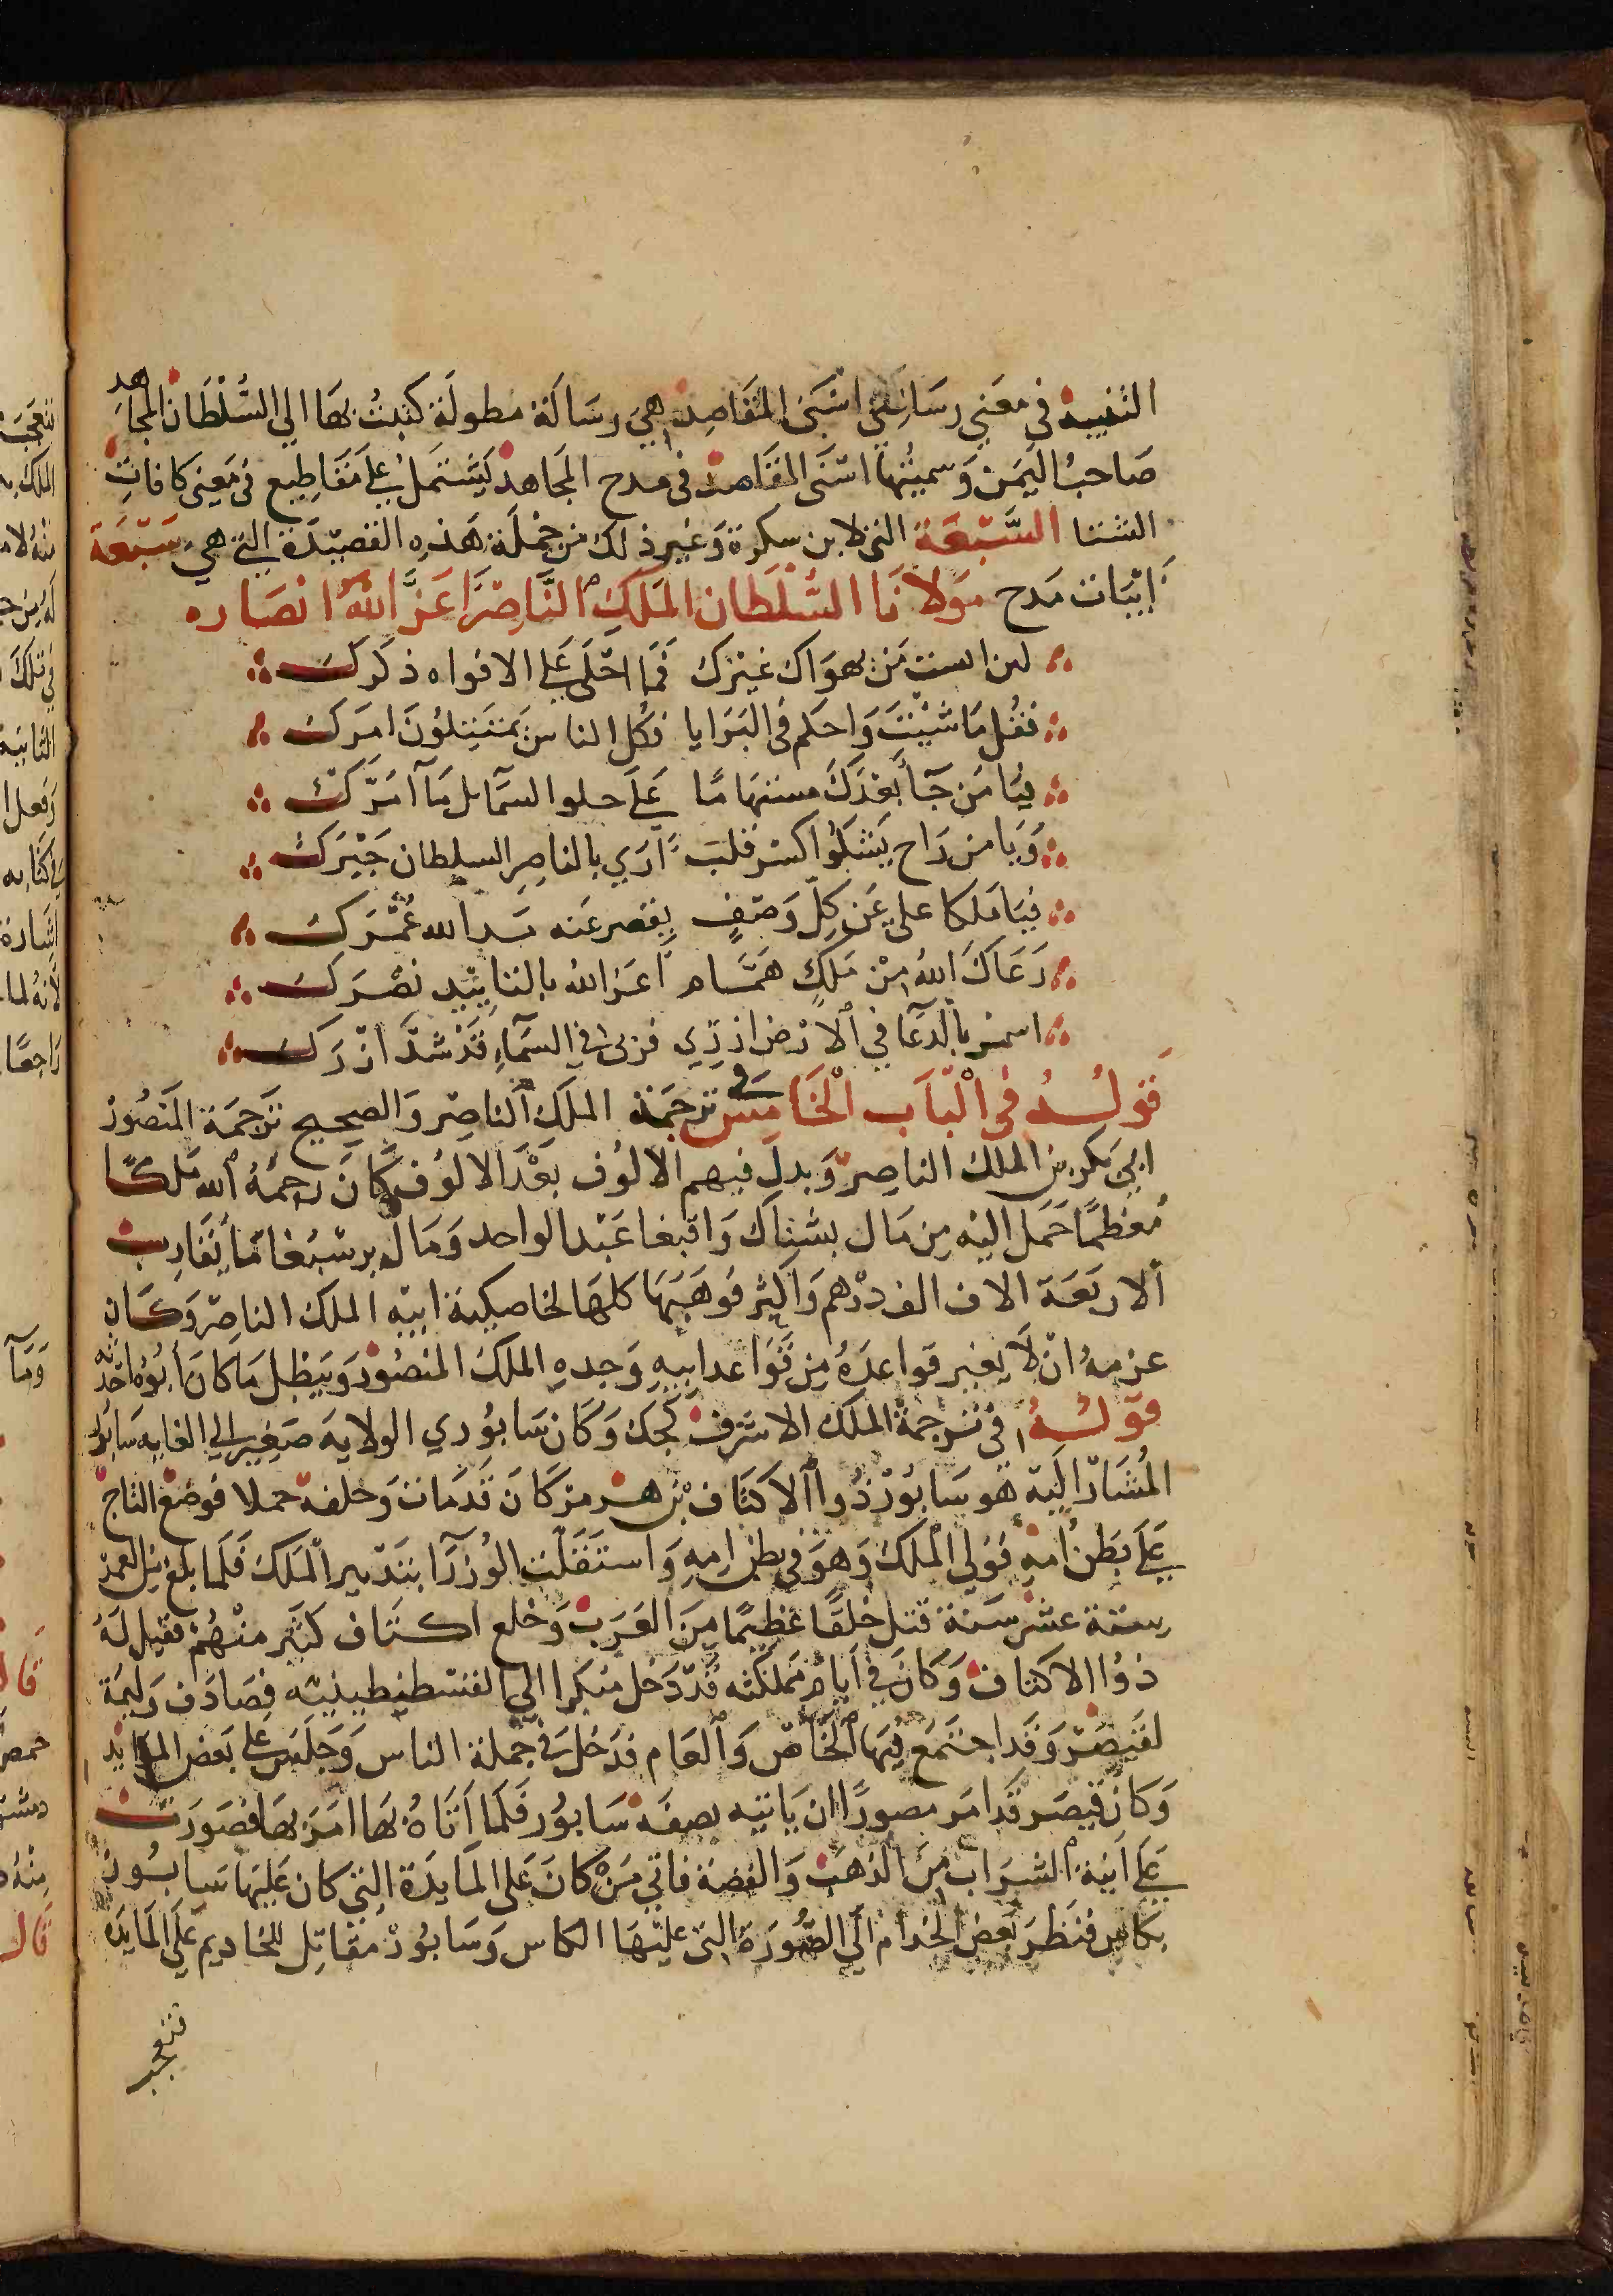 التنبيه في معني رسالتي اسنى المقاصد هي رسالة مطولة كتبت بها الي السلطان المجاهد
صاحب اليمن وسميتها اسنى المقاصد في مدح المجاهد يشتمل علي مقاطيع في معنى كافات
الشتا السبعة التي لابن سكرة وغير ذلك من جملة هذه القصيدة التي هي سبعة
ابيات مدح مولانا السلطان الملك الناصر اعز الله انصاره
لمن است من يهواك غيرك فما احلى علي الافواه ذكرك
فقل ما شيت واحكم في البرايا فكل الناس يمتثلون امرك
فيا من جا بعدك مستهاما علي حلو الشمايل ما امرك
ويا من راح يشكوا كسر قلب اري بالناصر السلطان جبرك
فيا ملكا علي عن كل وصف يقصر عنه الله عمرك
رعاك الله من ملك همام اعز الله بالتاييد نصرك
بالدعا في الارض ازري في السماء قد شد ازرك
قوله في الباب الخامس في ترجمة الملك الناصر والصحيح ترجمة المنصور
ابي بكر بن الملك الناصر وبدل فيهم الالوف بعد الالوف كان رحمه الله ملكا
معظما حمل اليه من مال بشتاك واقبغا عبد الواحد ومال برسبغا ما يقارب
الاربعة الاف الف درهم واكثر فوهبها كلها لخاصكية ابيه الملك الناصر وكان
عزمه ان لا يغير قواعده من قواعد ابيه وجده الملك المنصور ويبطل ما كان ابوه احدثه
قوله في ترجمة الملك الاشرف كجك وكان سابوري الولاية صغير الي الغايه سابور
المشار اليه هو سابور ذوا الاكتاف بن هرمز كان قد مات وخلفه حملا فوضع التاج
علي بطن امه فولي الملك وهو في بطن امه واستقلت الوزرا بتدبير الملك فلما بلغ من العمر
ستة عشر سنة قتل خلقا عظيما من العرب وخلع اكتاف كثير منهم فقيل له
ذوا الاكتاف وكان في ايام مملكته قد دخل منكرا الي القسطنطينيه فصادف وليمة
لقيصر وقد اجتمع فيها الخاص والعام فدخل في جملة الناس وجلس علي بعض الموايد
وكان قيصر قد امر مصورا ان ياتيه بصفه سابور فلما اتاه بها امر بها فصورت
علي انية الشراب من الذهب والفضة فاتي من كان على المايدة التي كان عليها سابور
بكاس فنظر بعض الخدام الي الصورة التى عليها الكاس وسابور مقاتل للخاديم علي المايده
فتعجب